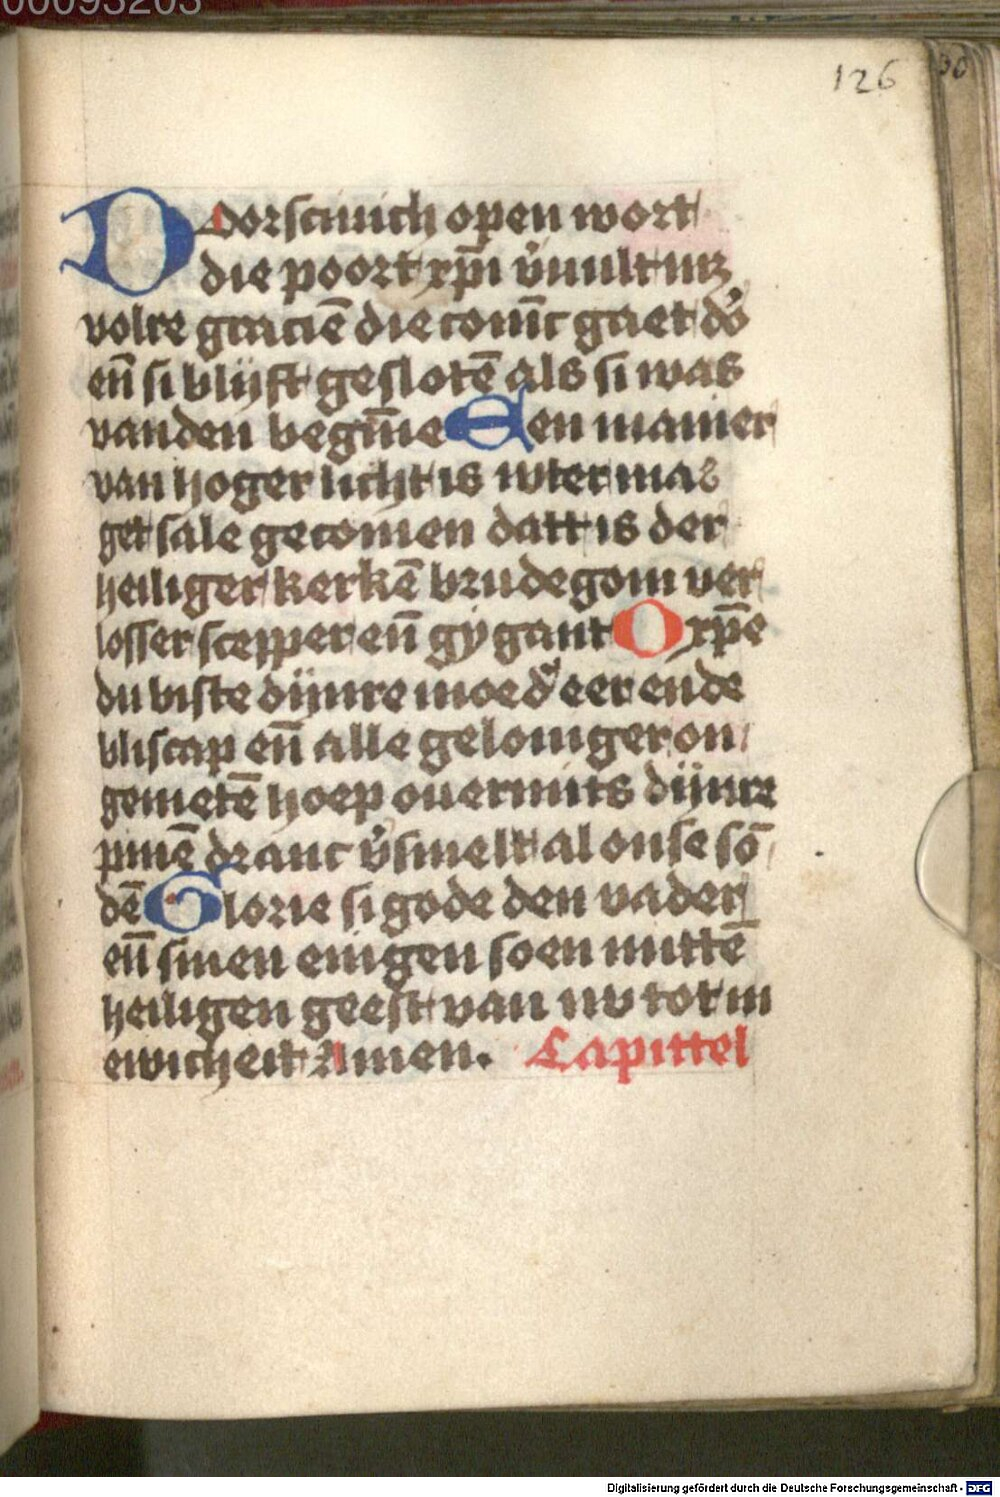 00093203
126
Doorscinich open wort
die poort xp̄i v̓uult mz
volre gracie̅ die conīc gaet dō
en̄ si blijft geslote̅ als si was
vanden begīne Een manier
van hoger licht is wter ma
get sale gecomen datt is der
heiliger kerke̅ brudegom ver
losser scepper en̄ gygant O xp̄e
du biste dijnre moed̓ eer ende
bliscap en̄ alle geloiuiger on
gemete̅ hoep ouermits dijnre
pine̅ dranc v̓smelt al onse so̅
de̅ Glorie si gode den vader
en̄ sinen einigen soen mitte̅
heiligen geest van nv tot in
ewicheit Amen. Capittel
Digitalisierung gefördert durch die Deutsche Forschungsgemeinschaft - DFG